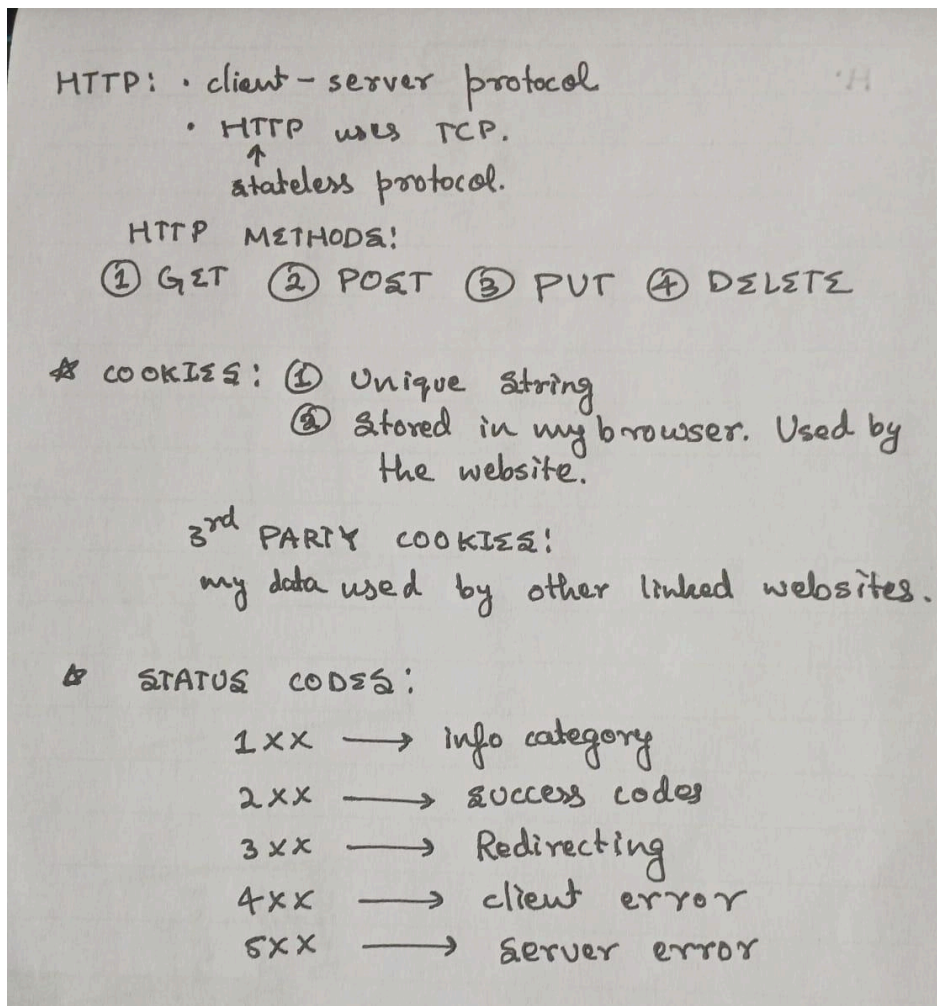 HTTP: • client - server protocol
• HTTP uses TCP.
↑
stateless protocol.
HTTP METHODS:
① GET ② POST ③ PUT ④ DELETE
☆ COOKIES: ① Unique String
② Stored in my browser. Used by
the website.
3rd PARTY COOKIES:
my data used by other linked websites.
☆ STATUS CODES:
1XX → info category
2XX → success codes
3XX → Redirecting
4XX → client error
5XX → server error